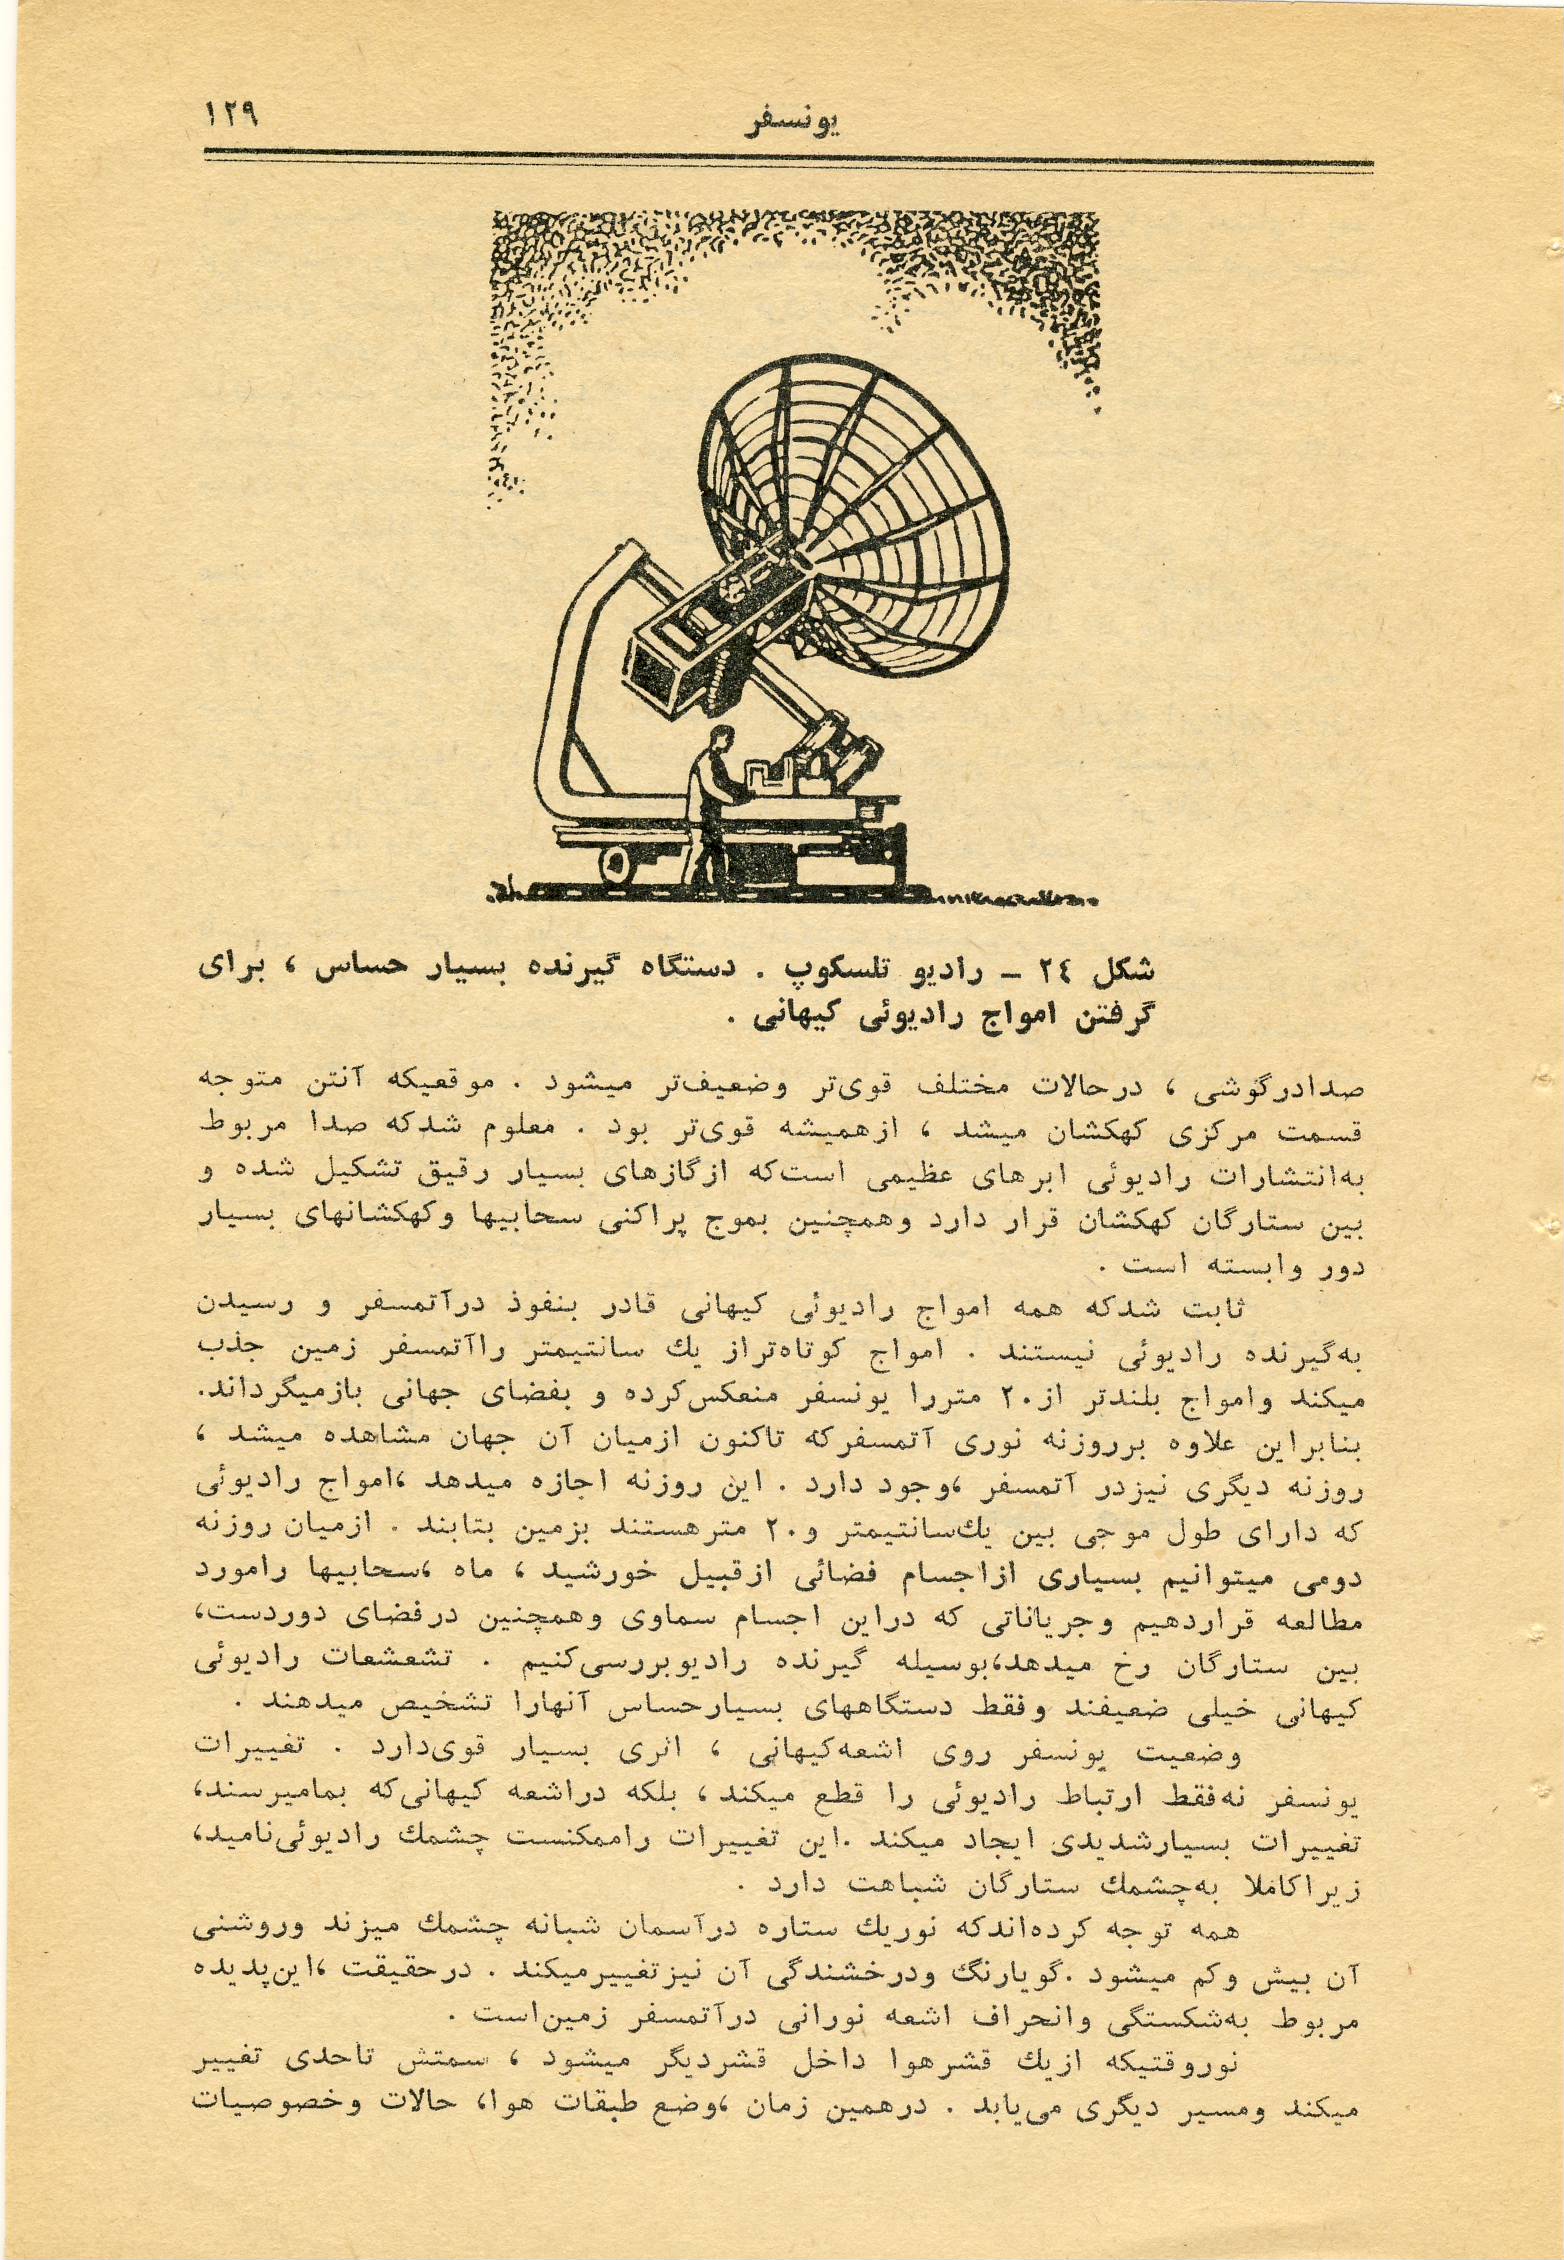 یونسفر
۱۲۹
شکل ۲٤ – رادیو تلسکوپ . دستگاه گیرنده بسیار حساس ، برای
گرفتن امواج رادیوئی کیهانی .
صدادرگوشی ، درحالات مختلف قوی‌تر وضعیف‌تر میشود . موقعیکه آنتن متوجه
قسمت مرکزی کهکشان میشد ، ازهمیشه قوی‌تر بود . معلوم شدکه صدا مربوط
به‌انتشارات رادیوئی ابرهای عظیمی است‌که ازگازهای بسیار رقیق تشکیل شده و
بین ستارگان کهکشان قرار دارد وهمچنین بموج پراکنی سحابیها وکهکشانهای بسیار
دور وابسته است .
ثابت شدکه همه امواج رادیوئی کیهانی قادر بنفوذ درآتمسفر و رسیدن
به‌گیرنده رادیوئی نیستند . امواج کوتاه‌تراز یك سانتیمتر راآتمسفر زمین جذب
میکند وامواج بلندتر از۲۰ متررا یونسفر منعکس‌کرده و بفضای جهانی بازمیگرداند.
بنابراین علاوه برروزنه نوری آتمسفرکه تاکنون ازمیان آن جهان مشاهده میشد ،
روزنه دیگری نیزدر آتمسفر ،وجود دارد . این روزنه اجازه میدهد ،امواج رادیوئی
که دارای طول موجی بین یك‌سانتیمتر و۲۰ مترهستند بزمین بتابند . ازمیان روزنه
دومی میتوانیم بسیاری ازاجسام فضائی ازقبیل خورشید ، ماه ،سحابیها رامورد
مطالعه قراردهیم وجریاناتی که دراین اجسام سماوی وهمچنین درفضای دوردست،
بین ستارگان رخ میدهد،بوسیله گیرنده رادیوبررسی‌کنیم . تشعشعات رادیوئی
کیهانی خیلی ضعیفند وفقط دستگاههای بسیارحساس آنهارا تشخیص میدهند .
وضعیت یونسفر روی اشعه‌کیهانی ، اثری بسیار قوی‌دارد . تغییرات
یونسفر نه‌فقط ارتباط رادیوئی را قطع میکند ، بلکه دراشعه کیهانی‌که بمامیرسند،
تغییرات بسیارشدیدی ایجاد میکند .این تغییرات راممکنست چشمك رادیوئی‌نامید،
زیراکاملا به‌چشمك ستارگان شباهت دارد .
همه توجه کرده‌اندکه نوریك ستاره درآسمان شبانه چشمك میزند وروشنی
آن بیش وکم میشود .گویارنگ ودرخشندگی آن نیزتغییرمیکند . درحقیقت ،این‌پدیده
مربوط به‌شکستگی وانحراف اشعه نورانی درآتمسفر زمین‌است .
نوروقتیکه ازیك قشرهوا داخل قشردیگر میشود ، سمتش تاحدی تغییر
میکند ومسیر دیگری می‌یابد . درهمین زمان ،وضع طبقات هوا، حالات وخصوصیات